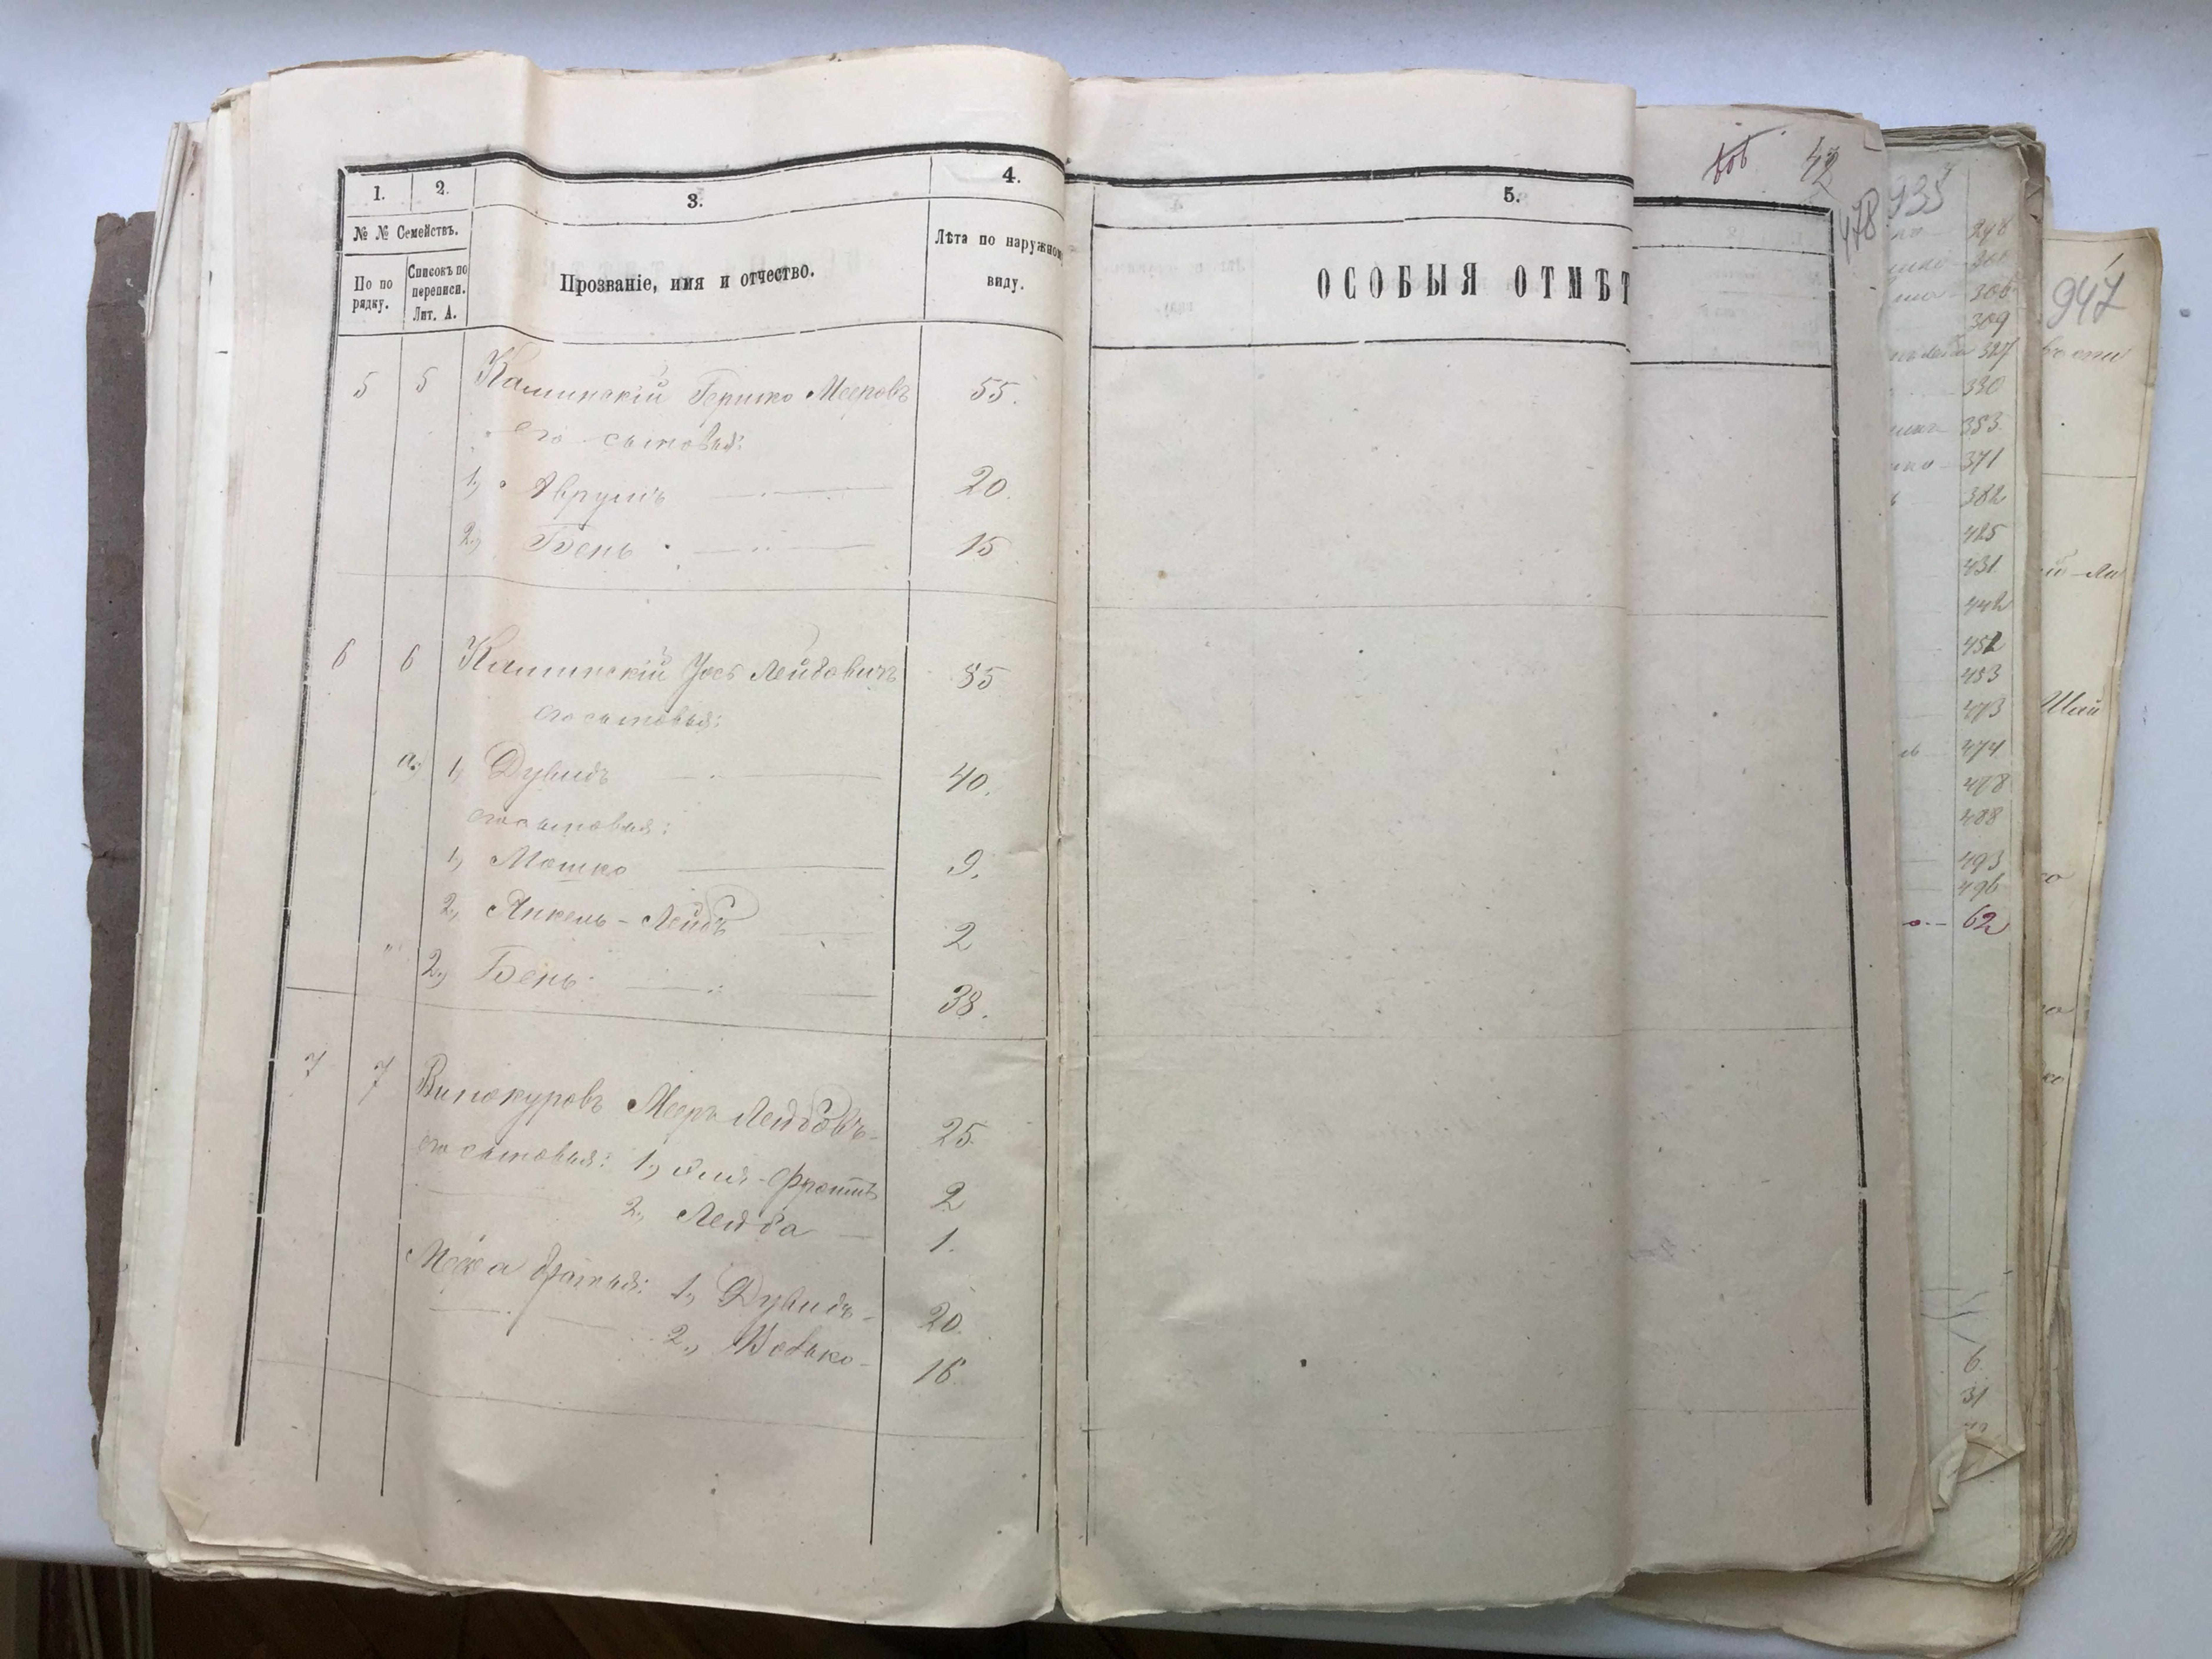 1. 2. 3. 4.
№ № Семействъ.
По по рядку.
Списокъ по переписи. Лит. А.
Прозваніе, имя и отчество.
Лѣта по наружному
виду.
5 5 Каминскій Гершко Мееровъ 55.
его сыновья:
1, Аврумъ 20.
2, Бень 15
6 6 Каминскій Йось Лейбовичъ 85
его сыновья:
а, 1, Дувидъ 40.
его сыновья:
1, Мошко 9.
2, Янкель-Лейбъ 2
" 2, Бень 38.
7 7 Винокуровъ Меер Лейбовъ 25.
его сыновья: 1, 2
2, Лейба 1.
братья: 1, Дувидъ 20.
2, 16.
5.
ОСОБЫЯ ОТМѢТ
42
478
935
298
306
309
327
330
353
371
382
425
431
442
452
453
473
474
478
488
493
496
62
6
31
947
Шай